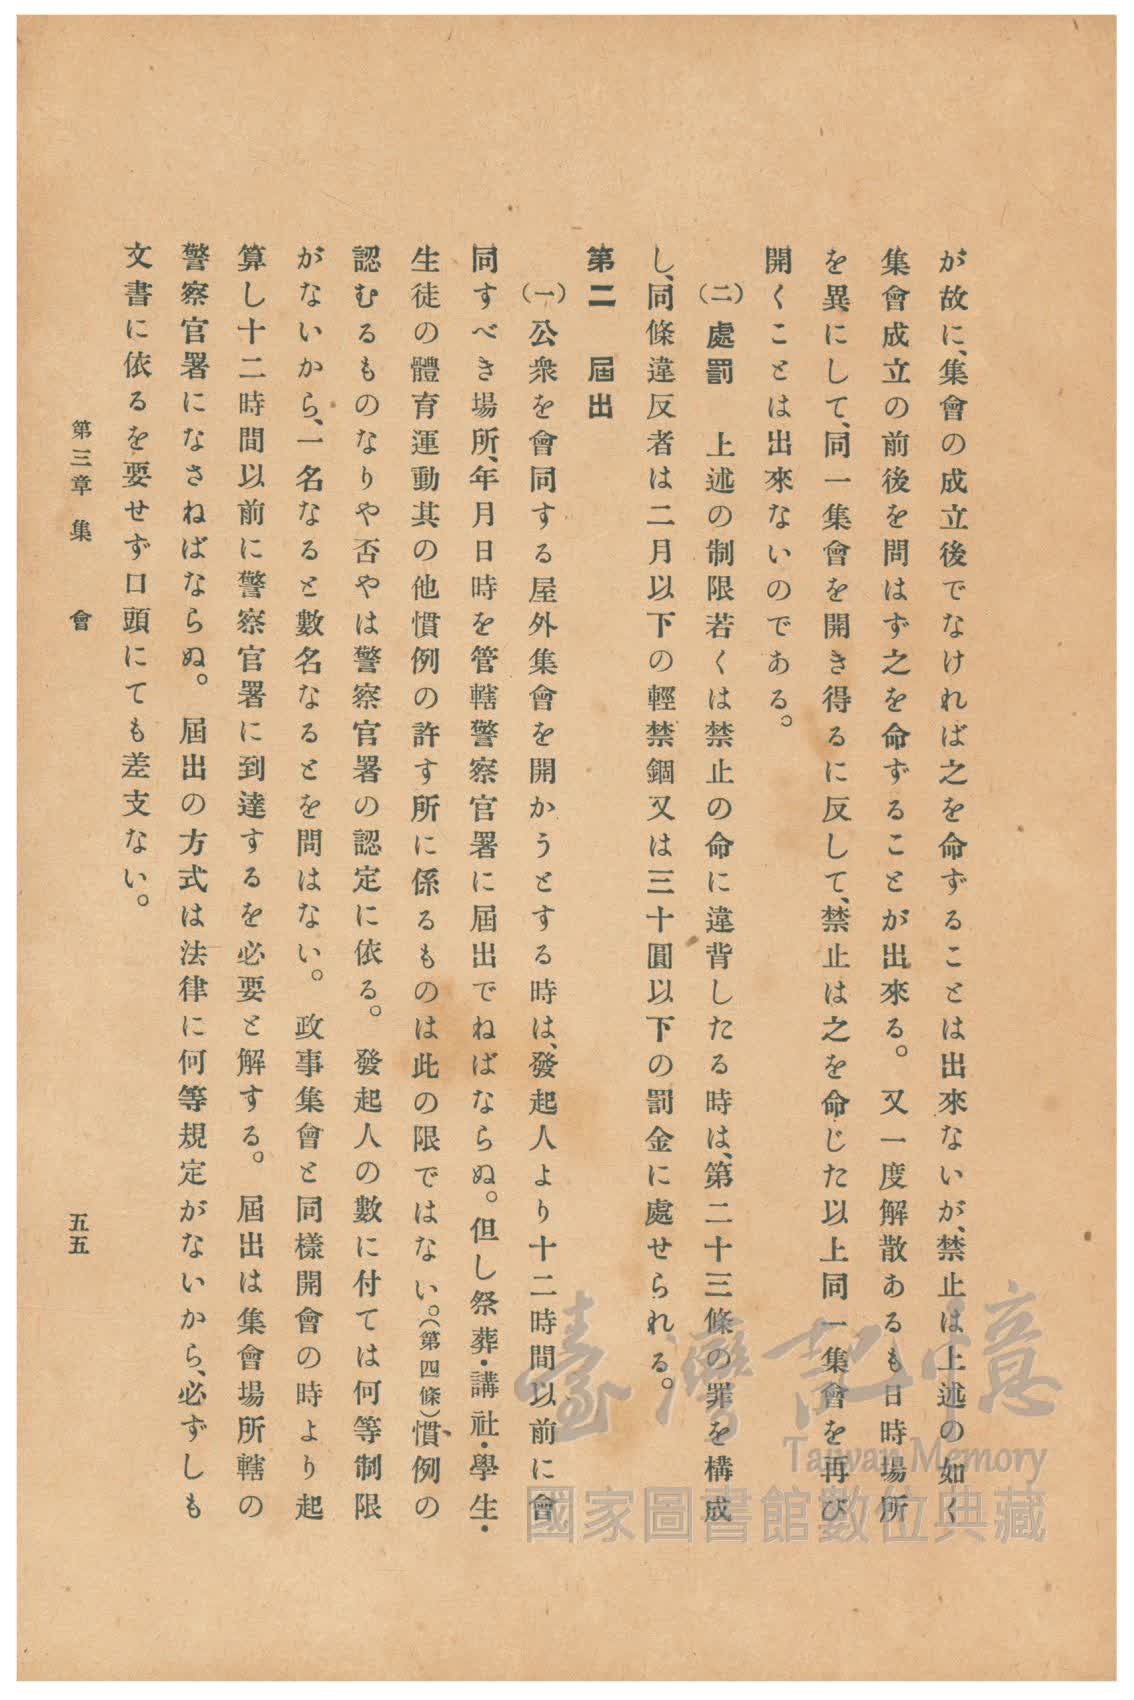 が故に、集會の成立後でなければ之を命ずることは出來ないが、禁止は上述の如く
集會成立の前後を問はず之を命ずることが出來る。又一度解散あるも日時場所
を異にして、同一集會を開き得るに反して、禁止は之を命じた以上同一集會を再び
開くことは出來ないのである。
(二) 處罰　上述の制限若くは禁止の命に違背したる時は、第二十三條の罪を構成
し、同條違反者は二月以下の輕禁錮又は三十圓以下の罰金に處せられる。
第二　屆出
(一) 公衆を會同する屋外集會を開かうとする時は、發起人より十二時間以前に會
同すべき場所、年月日時を管轄警察官署に屆出でねばならぬ。但し祭葬・講社・學生・
生徒の體育運動其の他慣例の許す所に係るものは此の限ではない。(第四條)慣例の
認むるものなりや否やは警察官署の認定に依る。發起人の數に付ては何等制限
がないから、一名なると數名なるとを問はない。政事集會と同樣開會の時より起
算し十二時間以前に警察官署に到達するを必要と解する。屆出は集會場所轄の
警察官署になさねばならぬ。屆出の方式は法律に何等規定がないから、必ずしも
文書に依るを要せず口頭にても差支ない。
第三章 集　會
五五
臺灣記憶
Taiwan Memory
國家圖書館數位典藏